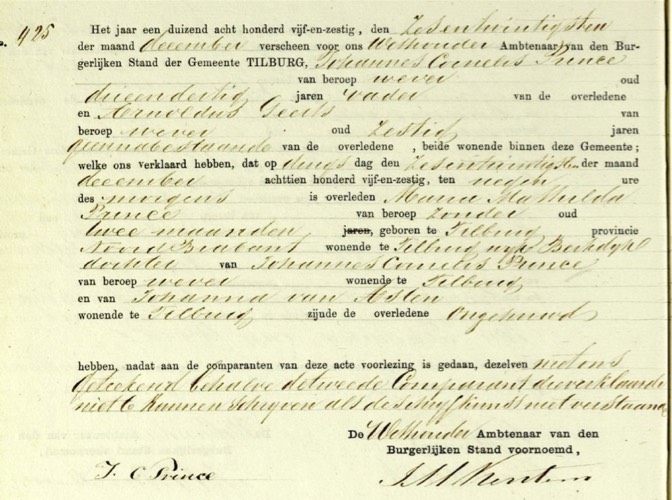 425
Het jaar een duizend acht honderd vijf-en-zestig, den Zesentwintigsten
der maand december verscheen voor ons Wethouder Ambtenaar van den Bur-
gerlijken Stand der Gemeente TILBURG, Johannes Cornelis Prince
van beroep wever oud
drieendertig jaren vader van de overledene
en Arnoldus Geerts van
beroep wever oud Zestig jaren
geennabestaande van de overledene , beide wonende binnen deze Gemeente;
welke ons verklaard hebben, dat op dings dag den Zesentwintigsten der maand
december achttien honderd vijf-en-zestig, ten negen ure
des morgens is overleden Maria Mathilda
Prince van beroep Zonder oud
twee maanden jaren, geboren te Tilburg provincie
Noord Brabant wonende te Tilburg wijk Berkdijk
dochter van Johannes Cornelis Prince
van beroep wever wonende te Tilburg
en van Johanna van Aslen
wonende te Tilburg zijnde de overledene Ongehuwd
hebben, nadat aan de comparanten van deze acte voorlezing is gedaan, dezelven met ons
geteekend behalve de tweede Comparant die verklaarde
niet te kunnen schrijven als de schrijfkunst niet verstaande
De Wethouder Ambtenaar van den
Burgerlijken Stand voornoemd,
J. C Prince